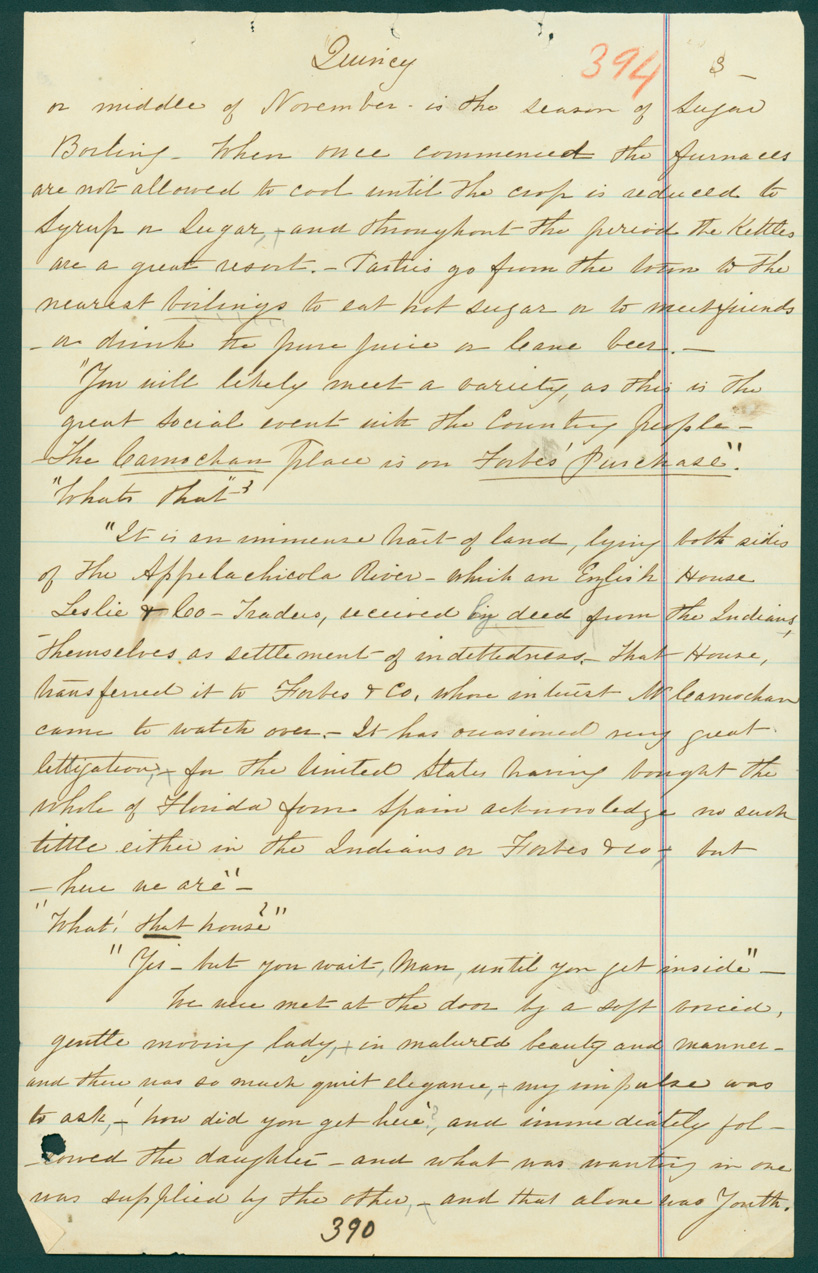 Quincy 394 3-
or middle of November - is the season of Sugar
Boiling - When once commenced the furnaces
are not allowed to cool until the crop is reduced to
Syrup or Sugar, - and throughout the period the Kettles
are a great resort. - Parties go from the town to the
nearest boilings to eat hot sugar or to meet friends
- or drink the pure juice or Cane beer. -
"You will likely meet a variety, as this is the
great social event with the Country people -
- The Carnochan Place is on Forbes' Purchase".
"Whats that"?
"It is an immense tract of land, lying both sides
of the Appelachicola River - which an English House
Leslie & Co - Traders, received by deed from the Indians,
themselves as settlement of indebtedness. - That House,
transferred it to Forbes & Co. whose interest Mr Carnochan
came to watch over. - It has occasioned very great
littigation, - for the United States having bought the
whole of Florida from Spain acknowledge no such
tittle either in the Indians or Forbes & co -, but
- here we are" -
"What! that house?"
"Yes - but you wait, Man, until you get inside" -
We were met at the door by a soft voiced,
gentle moving lady, - in matured beauty and manner -
and there was so much quiet elegance, - my impulse was
to ask, - 'how did you get here'?, and immediately fol -
- lowed the daughter - and what was wanting in one
was supplied by the other, - and that alone was Youth.
390